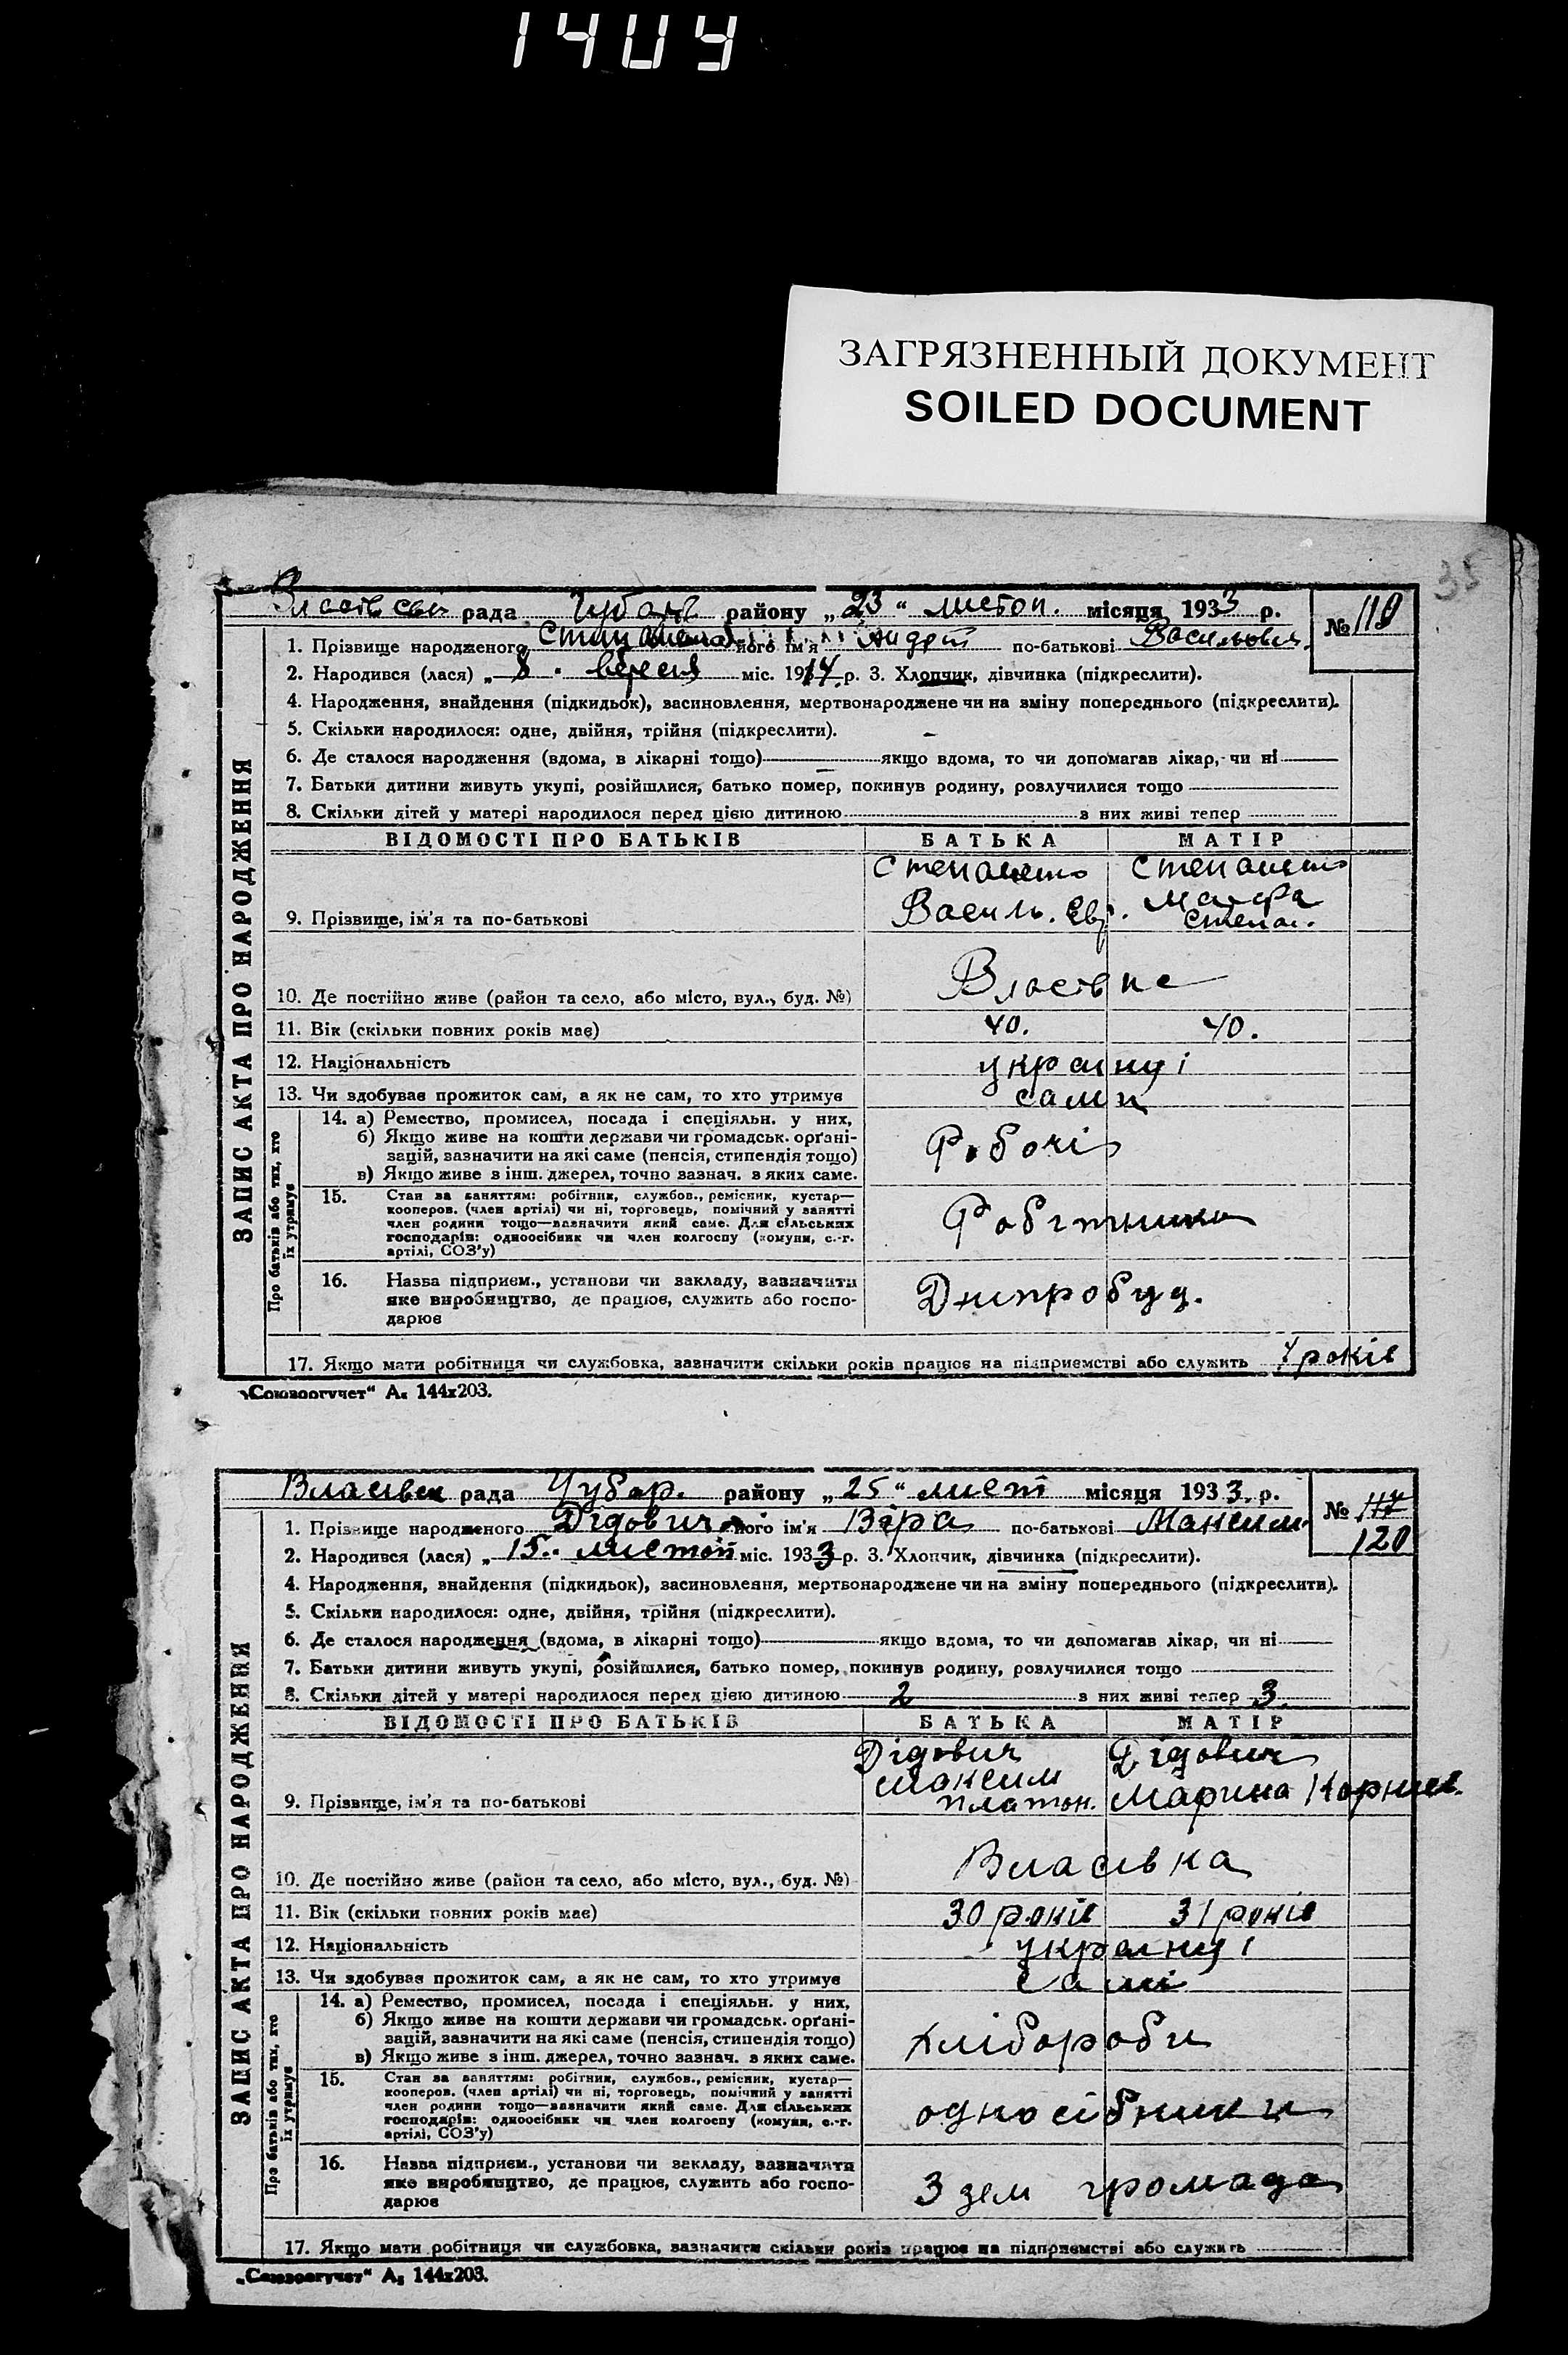 35
ЗАГРЯЗНЕННЫЙ ДОКУМЕНТ
SOILED DOCUMENT
ЗАПИС АКТА ПРО НАРОДЖЕННЯ
рада Чубарів району „23“ листоп. місяця 1933 р.
№ 119
1. Прізвище народженого його ім'я Андрій по-батькові Васильович
2. Народився (лася) „8“ вересня міс. 1914 р. 3. Хлопчик, дівчинка (підкреслити).
4. Народження, знайдення (підкидьок), засиновлення, мертвонароджене чи на зміну попереднього (підкреслити).
5. Скільки народилося: одне, двійня, трійня (підкреслити).
6. Де сталося народження (вдома, в лікарні тощо) якщо вдома, то чи допомагав лікар, чи ні
7. Батьки дитини живуть укупі, розійшлися, батько помер, покинув родину, розлучилися тощо
8. Скільки дітей у матері народилося перед цією дитиною з них живі тепер
ВІДОМОСТІ ПРО БАТЬКІВ БАТЬКА МАТІР
Степаненко Степаненко
9. Прізвище, ім'я та по-батькові Василь. Євр. Степан.
10. Де постійно живе (район та село, або місто, вул., буд. №) Власівка
11. Вік (скільки повних років має) 40. 40.
12. Національність українці
13. Чи здобував прожиток сам, а як не сам, то хто утримує сами
Про батьків або тих, хто їх утримує
14. а) Ремество, промисел, посада і спеціяльн. у них,
б) Якщо живе на кошти держави чи громадськ. орґані-
зацій, зазначити на які саме (пенсія, стипендія тощо) Робочі
в) Якщо живе з інш. джерел, точно зазнач. з яких саме.
15. Стан за заняттям: робітник, службов., ремісник, кустар—
кооперов. (член артілі) чи ні, торговець, помічний у занятті
член родини тощо—зазначити який саме. Для сільських
господарів: одноосібник чи член колгоспу (комуни, с.-г.
артілі, СОЗ'у) Робітники
16. Назва підприєм., установи чи закладу, зазначити
яке виробництво, де працює, служить або госпо-
дарює Дніпробуд.
17. Якщо мати робітниця чи службовка, зазначити скільки років працює на підприємстві або служить 4 років
„Союзоргучет“ А₅ 144х203.
ЗАПИС АКТА ПРО НАРОДЖЕННЯ
Власівск рада Чубар. району „25“ лист місяця 1933 р.
№ 117
120
1. Прізвище народженого Дідович його ім'я Віра по-батькові Максим.
2. Народився (лася) „15“ листоп міс. 1933 р. 3. Хлопчик, дівчинка (підкреслити).
4. Народження, знайдення (підкидьок), засиновлення, мертвонароджене чи на зміну попереднього (підкреслити).
5. Скільки народилося: одне, двійня, трійня (підкреслити).
6. Де сталося народження (вдома, в лікарні тощо) якщо вдома, то чи допомагав лікар, чи ні
7. Батьки дитини живуть укупі, розійшлися, батько помер, покинув родину, розлучилися тощо
8. Скільки дітей у матері народилося перед цією дитиною 2 з них живі тепер 3
ВІДОМОСТІ ПРО БАТЬКІВ БАТЬКА МАТІР
Дідович Дідович
Максим
9. Прізвище, ім'я та по-батькові Платон. Марина Корніїв.
10. Де постійно живе (район та село, або місто, вул., буд. №) Власівка
11. Вік (скільки повних років має) 30 років 31 років
12. Національність українці
13. Чи здобував прожиток сам, а як не сам, то хто утримує самі
Про батьків або тих, хто їх утримує
14. а) Ремество, промисел, посада і спеціяльн. у них,
б) Якщо живе на кошти держави чи громадськ. орґані-
зацій, зазначити на які саме (пенсія, стипендія тощо) хлібороби
в) Якщо живе з інш. джерел, точно зазнач. з яких саме.
15. Стан за заняттям: робітник, службов., ремісник, кустар—
кооперов. (член артілі) чи ні, торговець, помічний у занятті
член родини тощо—зазначити який саме. Для сільських
господарів: одноосібник чи член колгоспу (комуни, с.-г.
артілі, СОЗ'у) односібники
16. Назва підприєм., установи чи закладу, зазначити
яке виробництво, де працює, служить або госпо-
дарює 3 зем громада
17. Якщо мати робітниця чи службовка, зазначити скільки років працює на підприємстві або служить
„Союзоргучет“ А₅ 144х203.